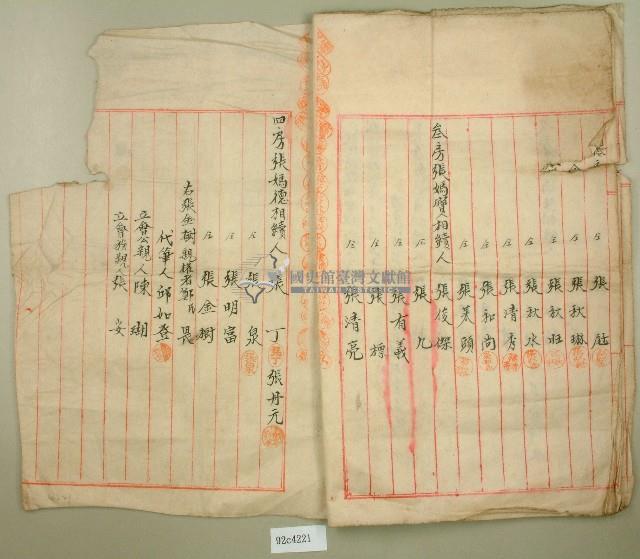 仝 張 庭
仝 張秋琳
仝 張秋旺
仝 張秋水
仝 張清秀
仝 張和尚
仝 張 頭
叁房張媽賢相續人 張俊傑
仝 張 九
仝 張有義
仝 張
仝 張清亮
四房張媽德相續人 張 丁 張丹元
仝 張 泉
仝 張明富
仝 張金樹
右張金樹親權者鄭氏 晨
代筆人邱如登
立會公親人陳 瑚
立會 親人張 安
國史館臺灣文獻館
92c4221